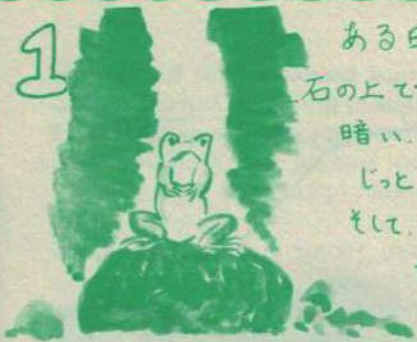 1
ある日
石の上で
暗い
じっと
そして